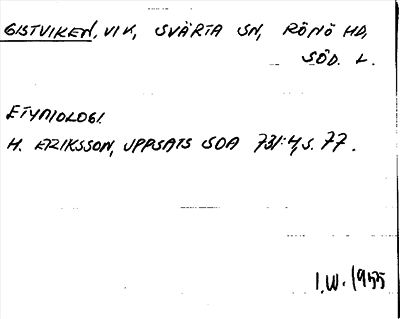 GISTVIKEN, VIK, SVÄRTA SN, RÖNÖ HD,
SÖD. L.
ETYMOLOGI.
H. ERIKSSON, UPPSATS SOA 731:4, S. 77.
I.W. 1955